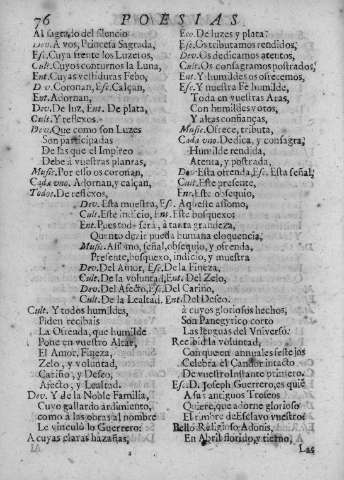 76 POESIAS.
Al sagrado del silencio
Dev. A vos, Princesa Sagrada,
Esc. Cuya frente los Luzeros,
Cult. Cuyos contornos la Luna,
Ent. Cuyas vestiduras Febo,
Dev. Coronan, Esc. Calçan,
Ent. Adornan,
Dev. De luz, Ent. De plata,
Cult. Y reflexos.
Dev. Que como son Luzes
Son participadas
De las que el Impireo
Debe à vuestras plantas,
Music. Por ello os coronan,
Cada uno. Adornan, y calçan,
Todos. De reflexos,
Ecc. De luzes y plata?
Esc. Os tributamos rendidos,
Dev. Os dedicamos atentos,
Cult. Os consagramos postrados,
Ent. Y humildes os ofrecemos,
Esc. Y nuestra Fè humilde,
Toda en vuestras Aras,
Con humildes votos,
Y altas confianças,
Music. Ofrece, tributa,
Cada uno. Dedica, y consagra,
Humilde rendida,
Atenta, y postrada,
Dev. Esta ofrenda, Esc. Esta señal,
Cult. Este presente,
Ent. Este obsequio,
Dev. Esta muestra, Esc. Aqueste assomo,
Cult. Este indicio, Ent. Este bosquexo:
Ent. Pues todo serà, à tanta grandeza,
Quanto dezir pueda humana eloquencia,
Music. Assomo, señal, obsequio, y ofrenda,
Presente, bosquexo, indicio, y muestra
Dev. Del Amor, Esc. De la Fineza,
Cult. De la voluntad, Ent. Del Zelo,
Dev. Del Afecto, Esc. Del Cariño,
Cult. De la Lealtad, Ent. Del Deseo.
Cult. Y todos humildes,
Piden recibais
La Ofrenda, que humilde
Pone en vuestro Altar,
El Amor, Fineza,
Zelo, y voluntad,
Cariño, y Deseo,
Afecto, y Lealtad.
Dev. Y de la Noble Familia,
Cuyo gallardo ardimiento,
como à las obras al nombre
Le vinculò lo Guerrero:
A cuyas claras hazañas,
à cuyos gloriosos hechos,
Son Panegyrico corto
Las lenguas del Vniverso.
Recibid la voluntad,
Con que en annuales festejos
Celebra el Candor intacto
De vuestro Instante primero.
Esc. D. Joseph Guerrero, es quiẽ
A sus antiguos Trofeos
Quiere, que adorne glorioso
El nombre de Esclavo vuestro:
Bello Religioso Adonis,
En Abril florido, y tierno,
Las